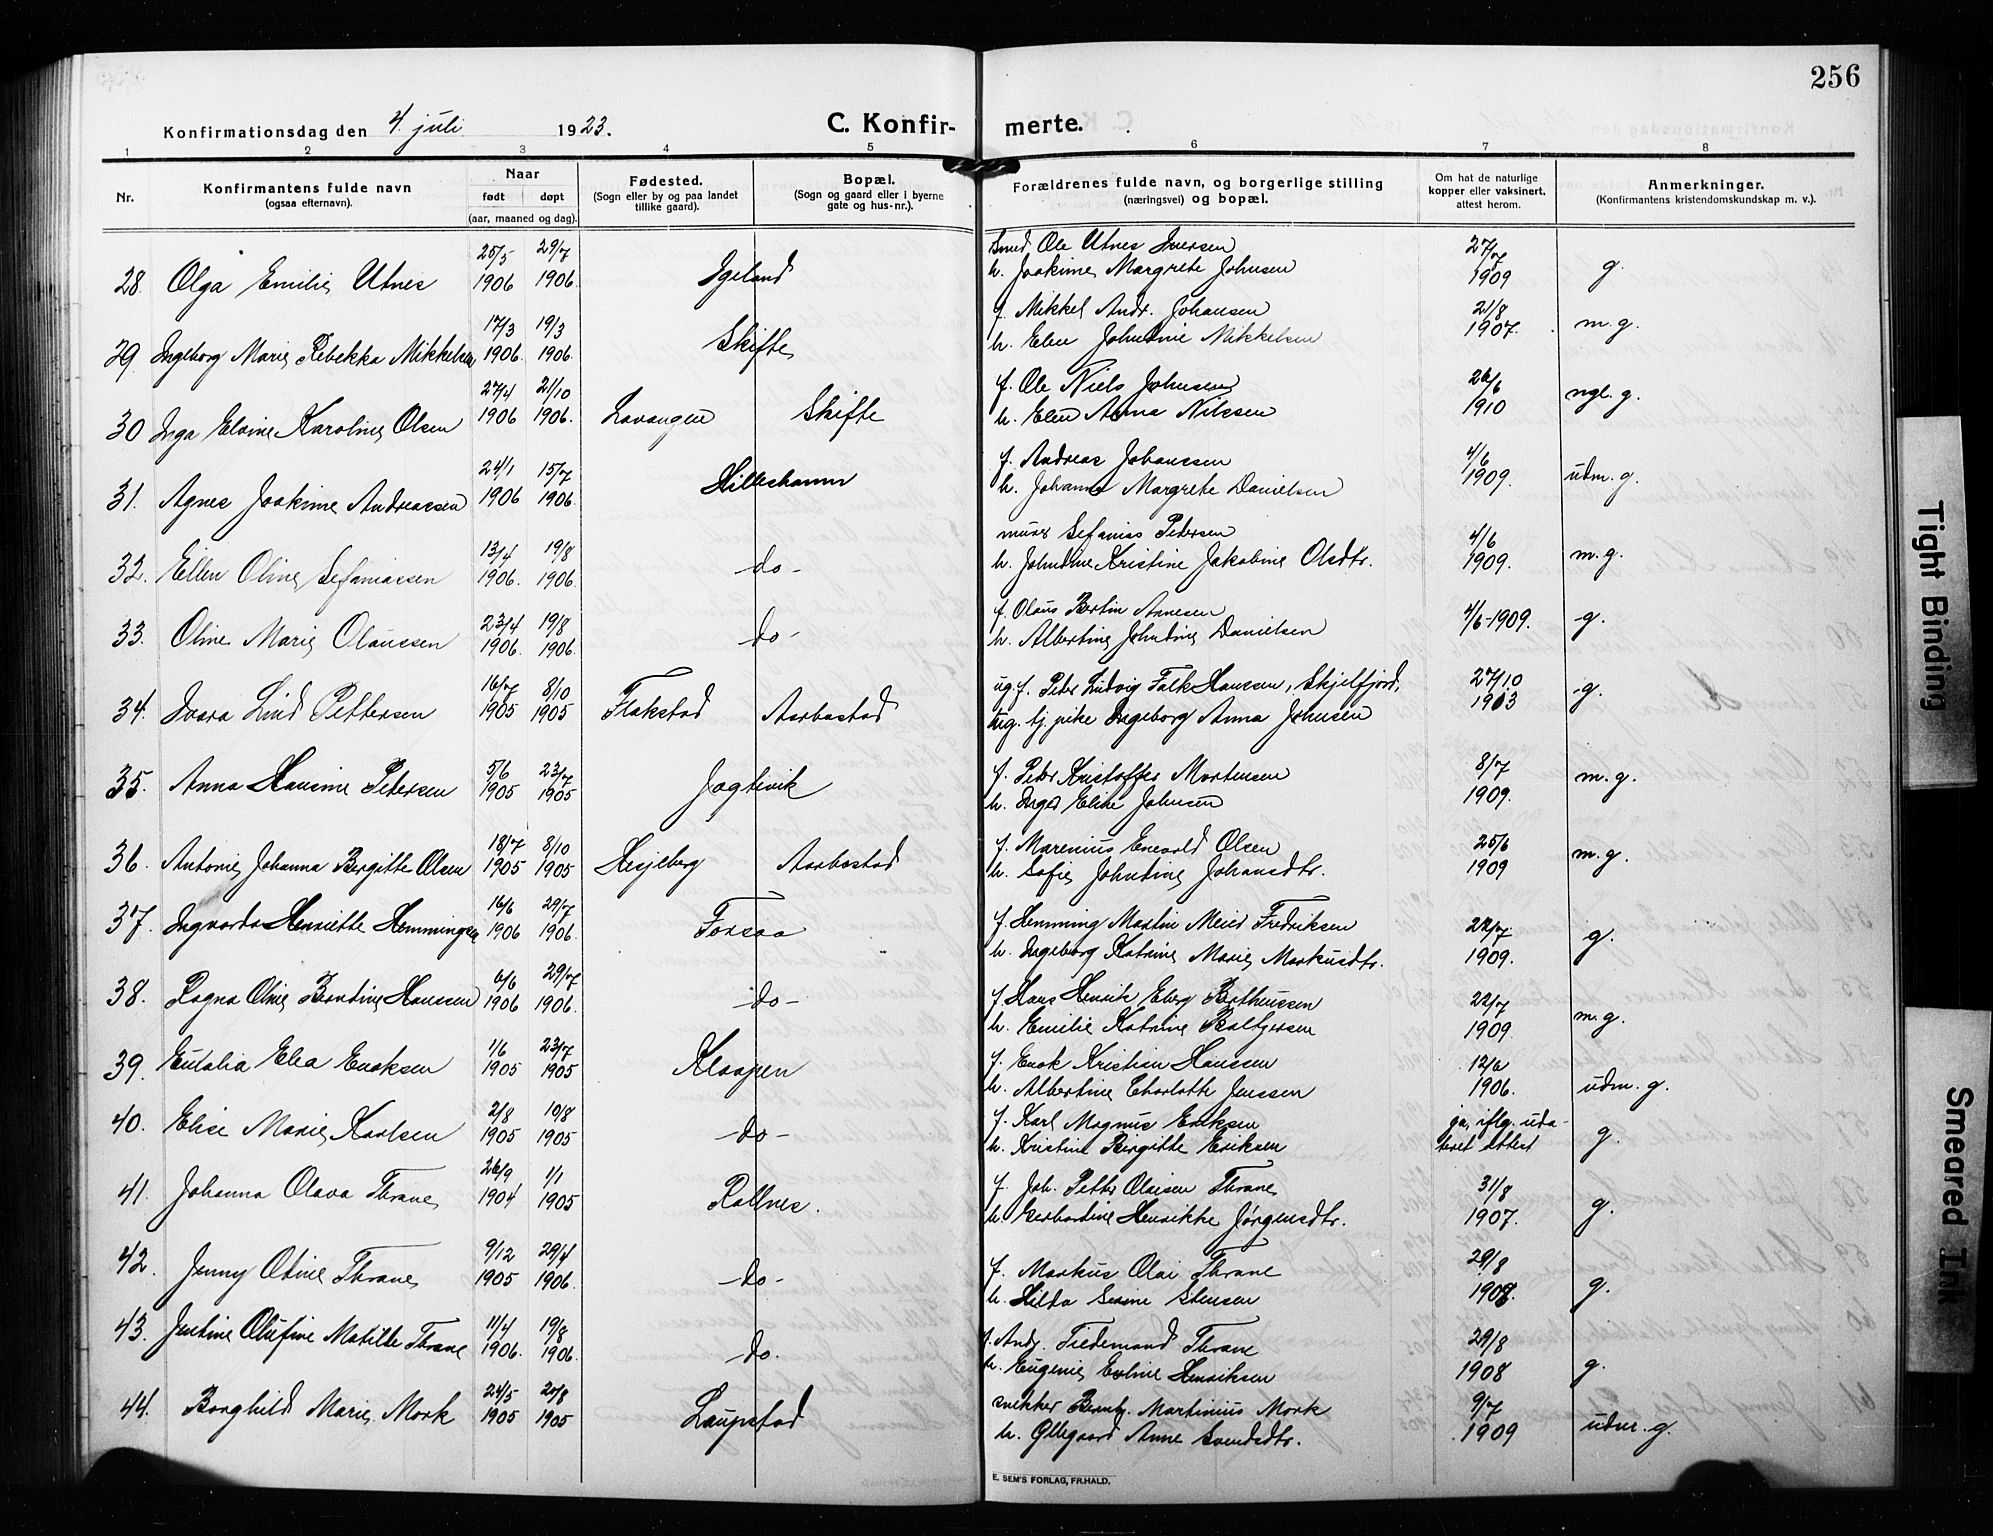 256
Konfirmationsdag den 4. juli 1923.
C. Konfir- merte.
1 2 3 4 5 6 7 8
Nr.
Konfirmantens fulde navn
(ogsaa efternavn).
Naar
født døpt
(aar, maaned og dag).
Fødested.
(Sogn eller by og paa landet
tillike gaard).
Bopæl.
(Sogn og gaard eller i byerne
gate og hus-nr.).
Forældrenes fulde navn, og borgerlige stilling
(næringsvei) og bopæl.
Om hat de naturlige
kopper eller vaksinert.
attest herom.
Anmerkninger.
(Konfirmantens kristendomskundskap m. v.).
25/5 29/7 Smed Ole Utnes Iversen 27/7
28. Olga Emilie Utnes 1906 1906. Igeland h. Joakime Margrete Johnsen 1909 g.
17/3 19/3 f. Mikkel Andr. Johansen 21/8
29. Ingeborg Marie Rebekka Mikkelsen 1906. 1906. Skifte h. Elen Johndine Mikkelsen 1907. m. g.
27/4 21/10 f. Ole Niels Johnsen 26/6
30 Inga Elvine Karoline Olsen 1906 1906. Lavangen Skifte h. Elen Anna Nilssen 1910 ngl. g.
24/1 15/7 f. Andreas Johanssen 4/6
31. Agnes Joakime Andreassen 1906 1906. Hilleshamn h. Johanna Margrete Danielsen 1909. udm. g.
13/4 19/8 murer Sefanias Pedersen 4/6
32. Ellen Oline Sefaniassen 1906. 1906. -do- h. Johndine Kristine Jakobine Olsdtr. 1909. m. g.
23/4 19/8 f. Olaus Bertin Annesen
33. Oline Marie Olaussen 1906. 1906. -do- h. Albertine Johndine Danielsen 4/6-1909. -g.
16/7 8/10 ug. f. Peder Ludvig Falk Hanssen, Skjelfjord, 27/10
34. Svara Lind Pettersen 1905 1905 Flakstad Aarbostad ug. tj. pike Ingeborg Anna Johnsen 1913 -g.
5/6 23/7 f. Peder Kristoffer Mortensen 8/7
35. Anna Hansine Petersen 1905 1905 Jogtevik h. Inger Eline Johnsen 1909. m. g.
18/7 8/10 f. Marenius Enevold Olsen 25/6
36. Antonie Johanna Bergitte Olsen 1905 1905 Hesjeberg Aarbostad h. Sofie Johndine Johansdtr. 1909 m. g.
16/6 29/7 f. Hemming Martin Meier Fredriksen 22/7
37. Ingvarda Henriette Hemmingsen 1906 1906. Forsaa h. Ingeborg Katrine Marie Markusdtr. 1909. g.
6/6 29/7 f. Hans Henrik Eberg Bertheussen 22/7
38. Ragna Oline Berntine Hanssen 1906 1906. -do- h. Emilie Katrine Baltzersen 1909. m. g.
1/6 23/7 f. Enok Kristian Hanssen 12/6
39. Eulalia Elea Enoksen 1905 1905 Klaapen h. Albertine Charlotte Jenssen 1906. udm. g.
2/8 10/8 f. Karl Magnus Eriksen ja, iflg. uda-
40. Elise Marie Karlsen 1905 1905 -do- h. Kristine Birgitte Eriksen teret attest g.
26/9 1/1 f. Joh. Petter Olaisen Thrane 31/8
41. Johanna Olava Thrane 1904 1905 Rollnes. h. Gerhardine Henrikke Jørgensdtr. 1907. g.
9/12 29/4 f. Markus Olai Thrane 29/8
42. Jenny Otine Thrane 1905 1906. -do- h. Hilda Sesine Stensen 1908. g.
11/4 19/8 f. Andr. Tiedemand Thrane 29/8
43. Jentine Olufine Matilde Thrane 1906. 1906. -do. h. Eugenie Evline Henriksen 1908 g.
24/5 20/8 snekker Berntz. Martinius Mork 9/7
44. Borghild Marie Mork 1905 1905 Laupstad h. Ollegaard Anne Svendsdtr. 1909 udm. g.
E. SEM'S FORLAG, FR.HALD.
Tight Binding
Smeared Ink